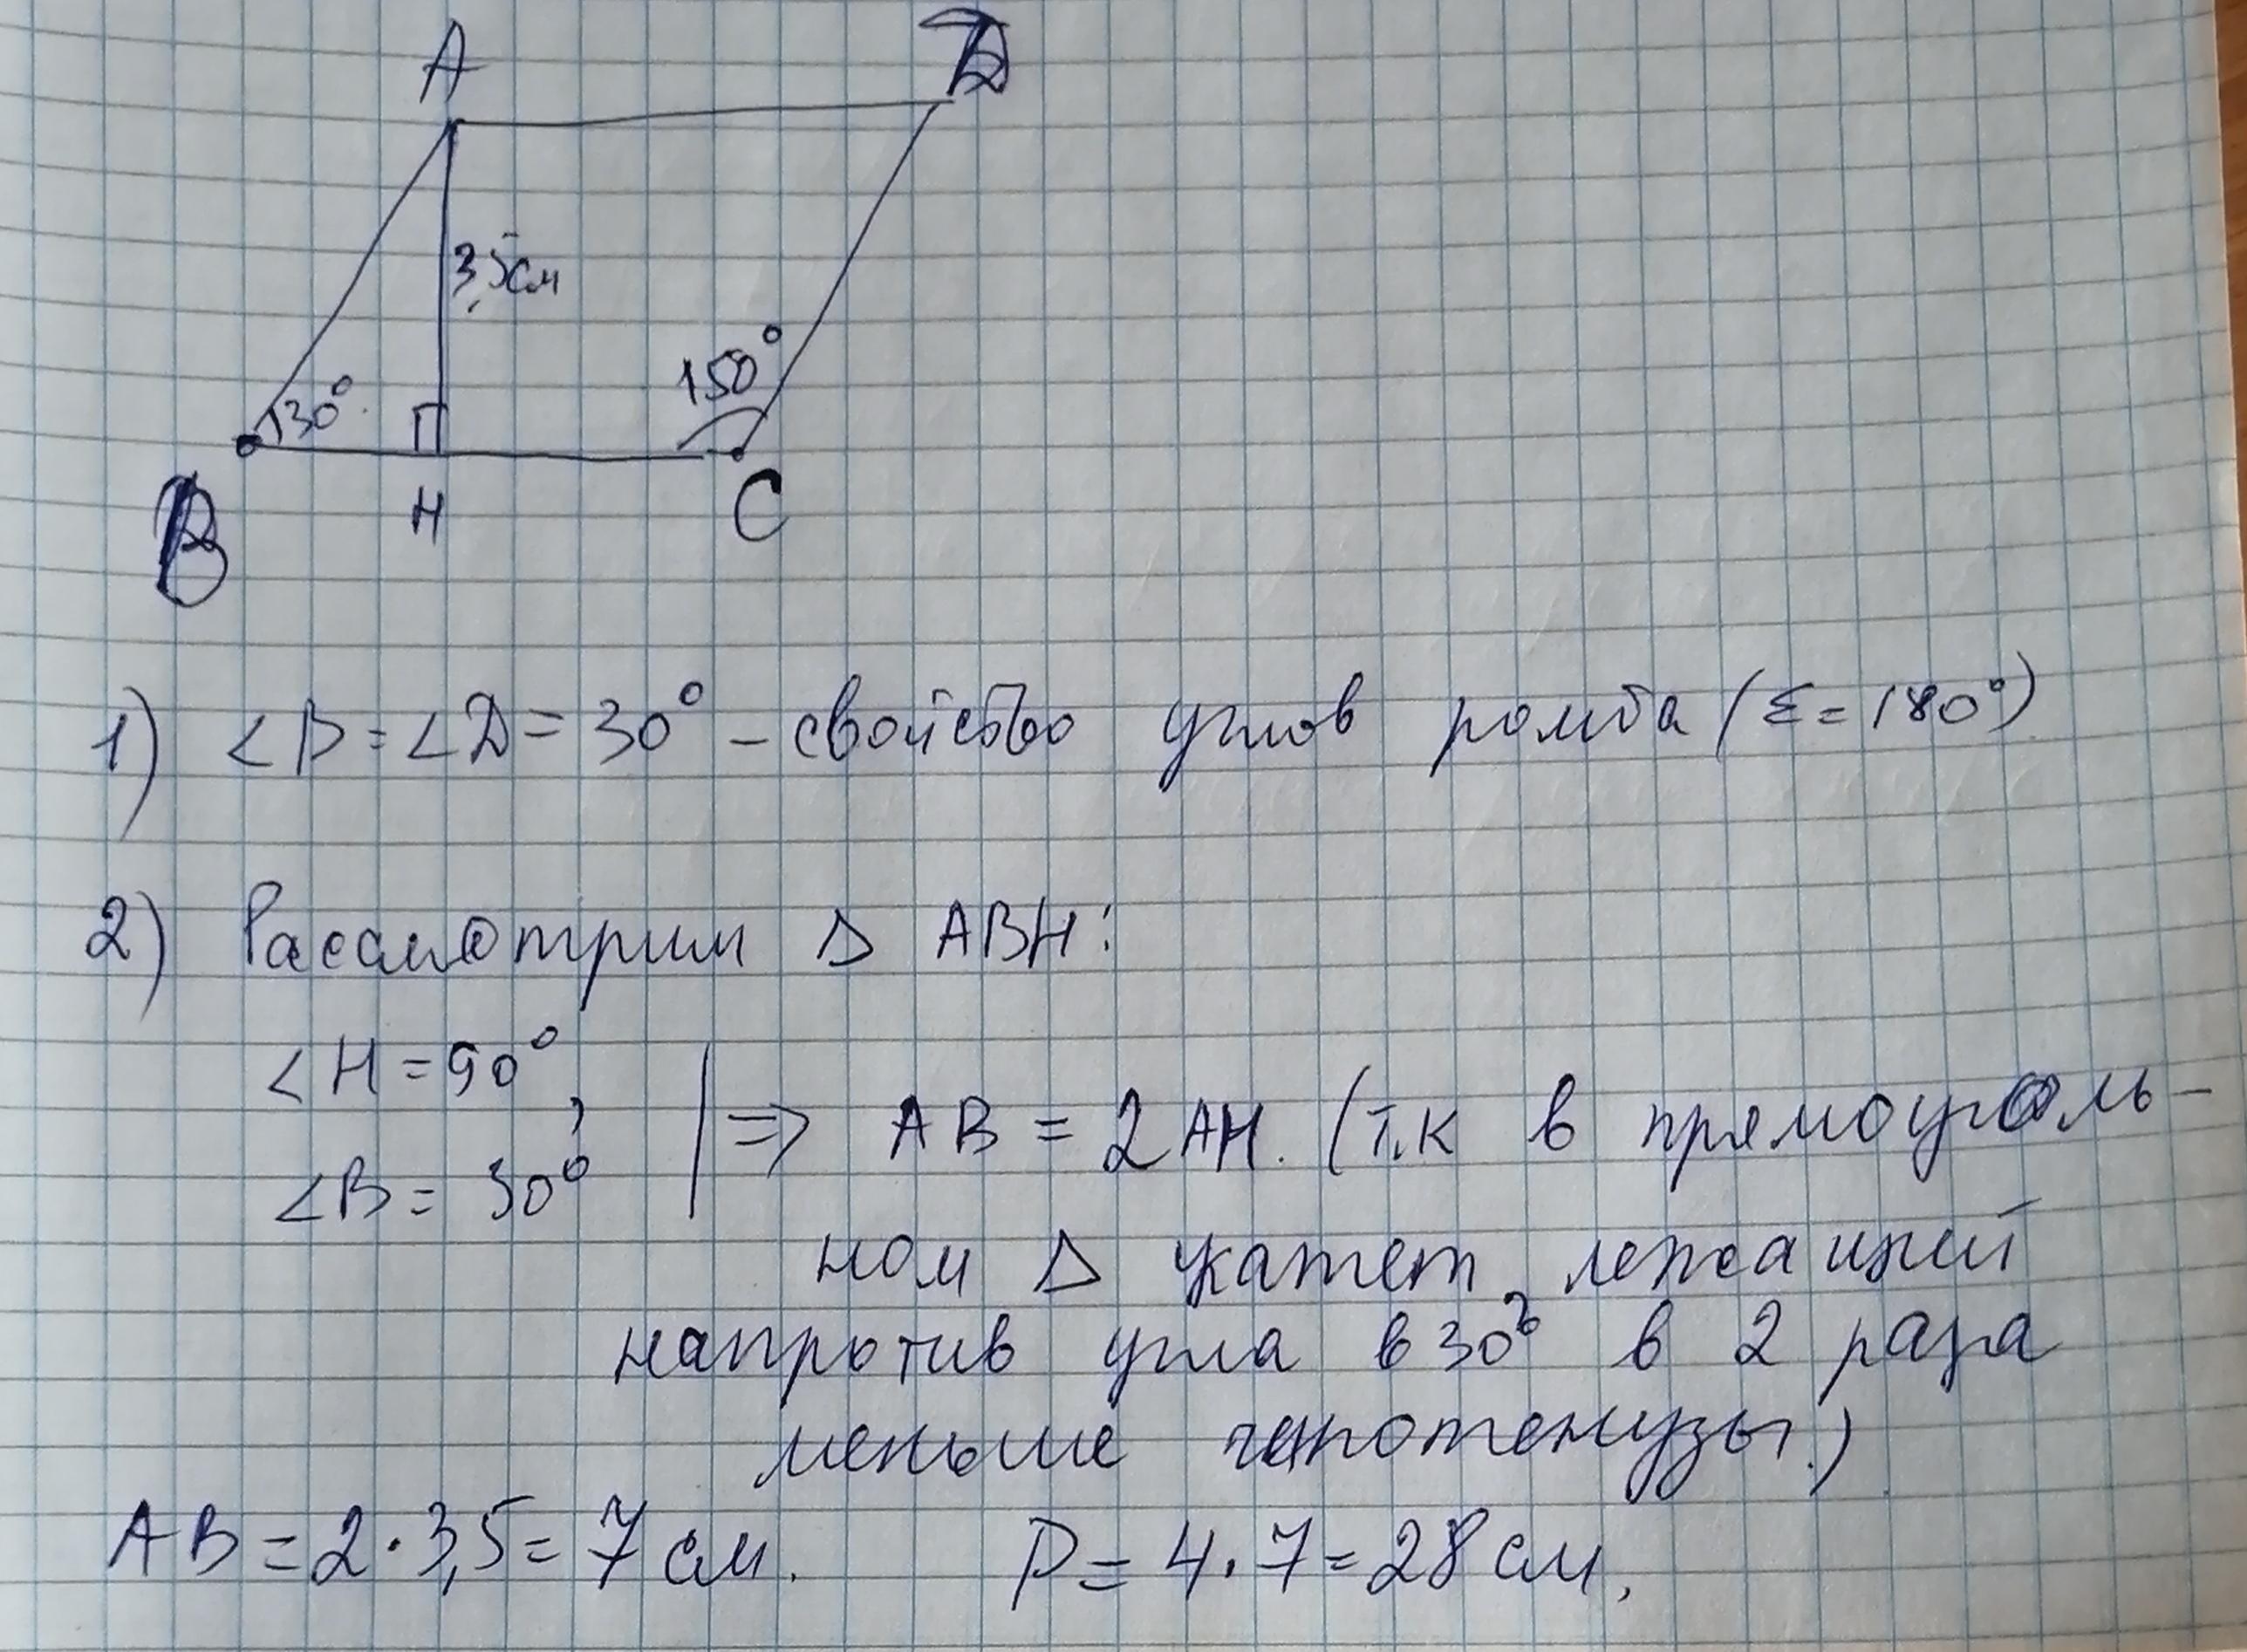 A D
3,5см
150°
30°
B H C
1) ∠B = ∠D = 30° – свойство углов ромба (Σ = 180°)
2) Рассмотрим Δ ABH:
∠H = 90°,
∠B = 30° | ⇒ AB = 2AH. (т.к в прямоуголь-
ном Δ катет, лежащий
напротив угла в 30° в 2 раза
меньше гипотенузы.)
AB = 2 · 3,5 = 7 см. P = 4 · 7 = 28 см.